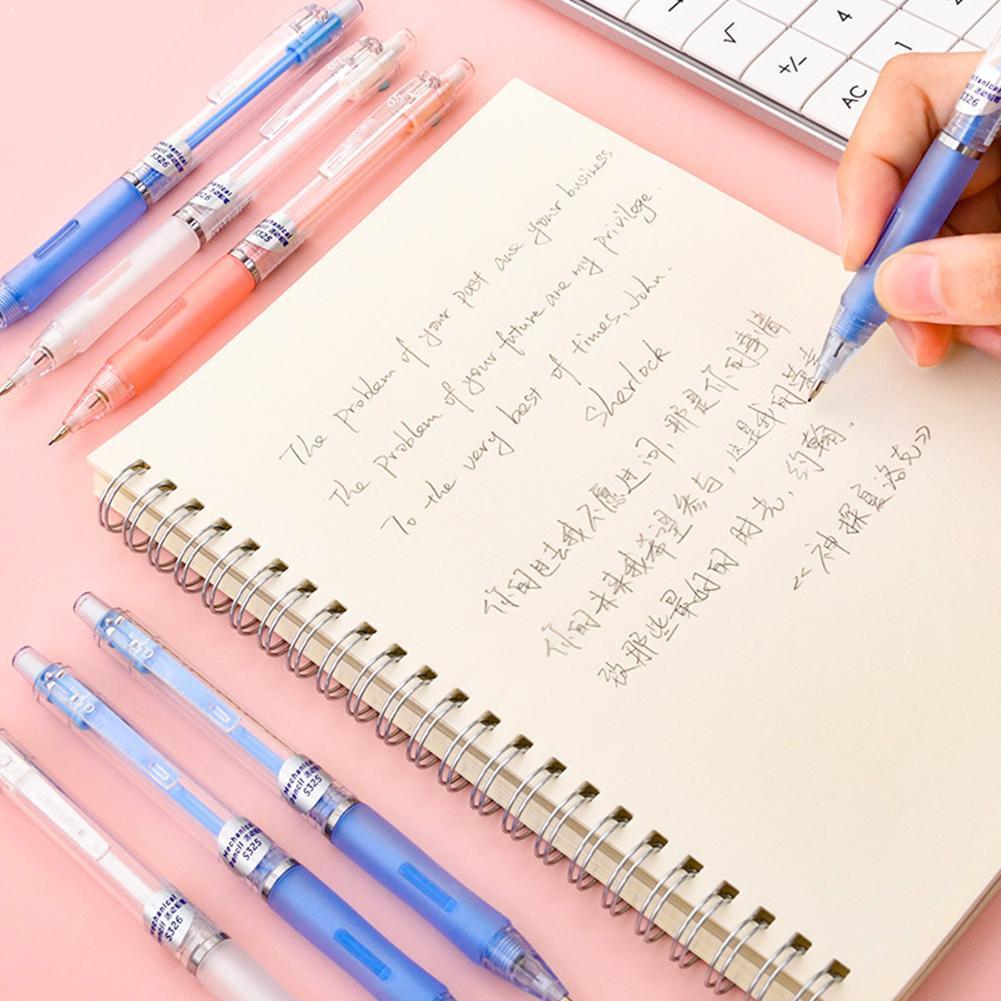 The problem of your past are your business.
The problem of your future are my privilege.
To the very best of times, John.
Sherlock
你的过去我不愿过问,那是你的事情
你的未来我希望参与,这是我的荣幸
致那些最好的时光,约翰.
《神探夏洛克》
√
4
+/-
1
AC
Mechanical
S326
Mechanical
S326
Mechanical
S325
S326
Mechanical
Pencil 活动铅笔
S325
Mechanical
Pencil 活动铅笔
S325
Mechanical
Pencil 活动铅笔
S326